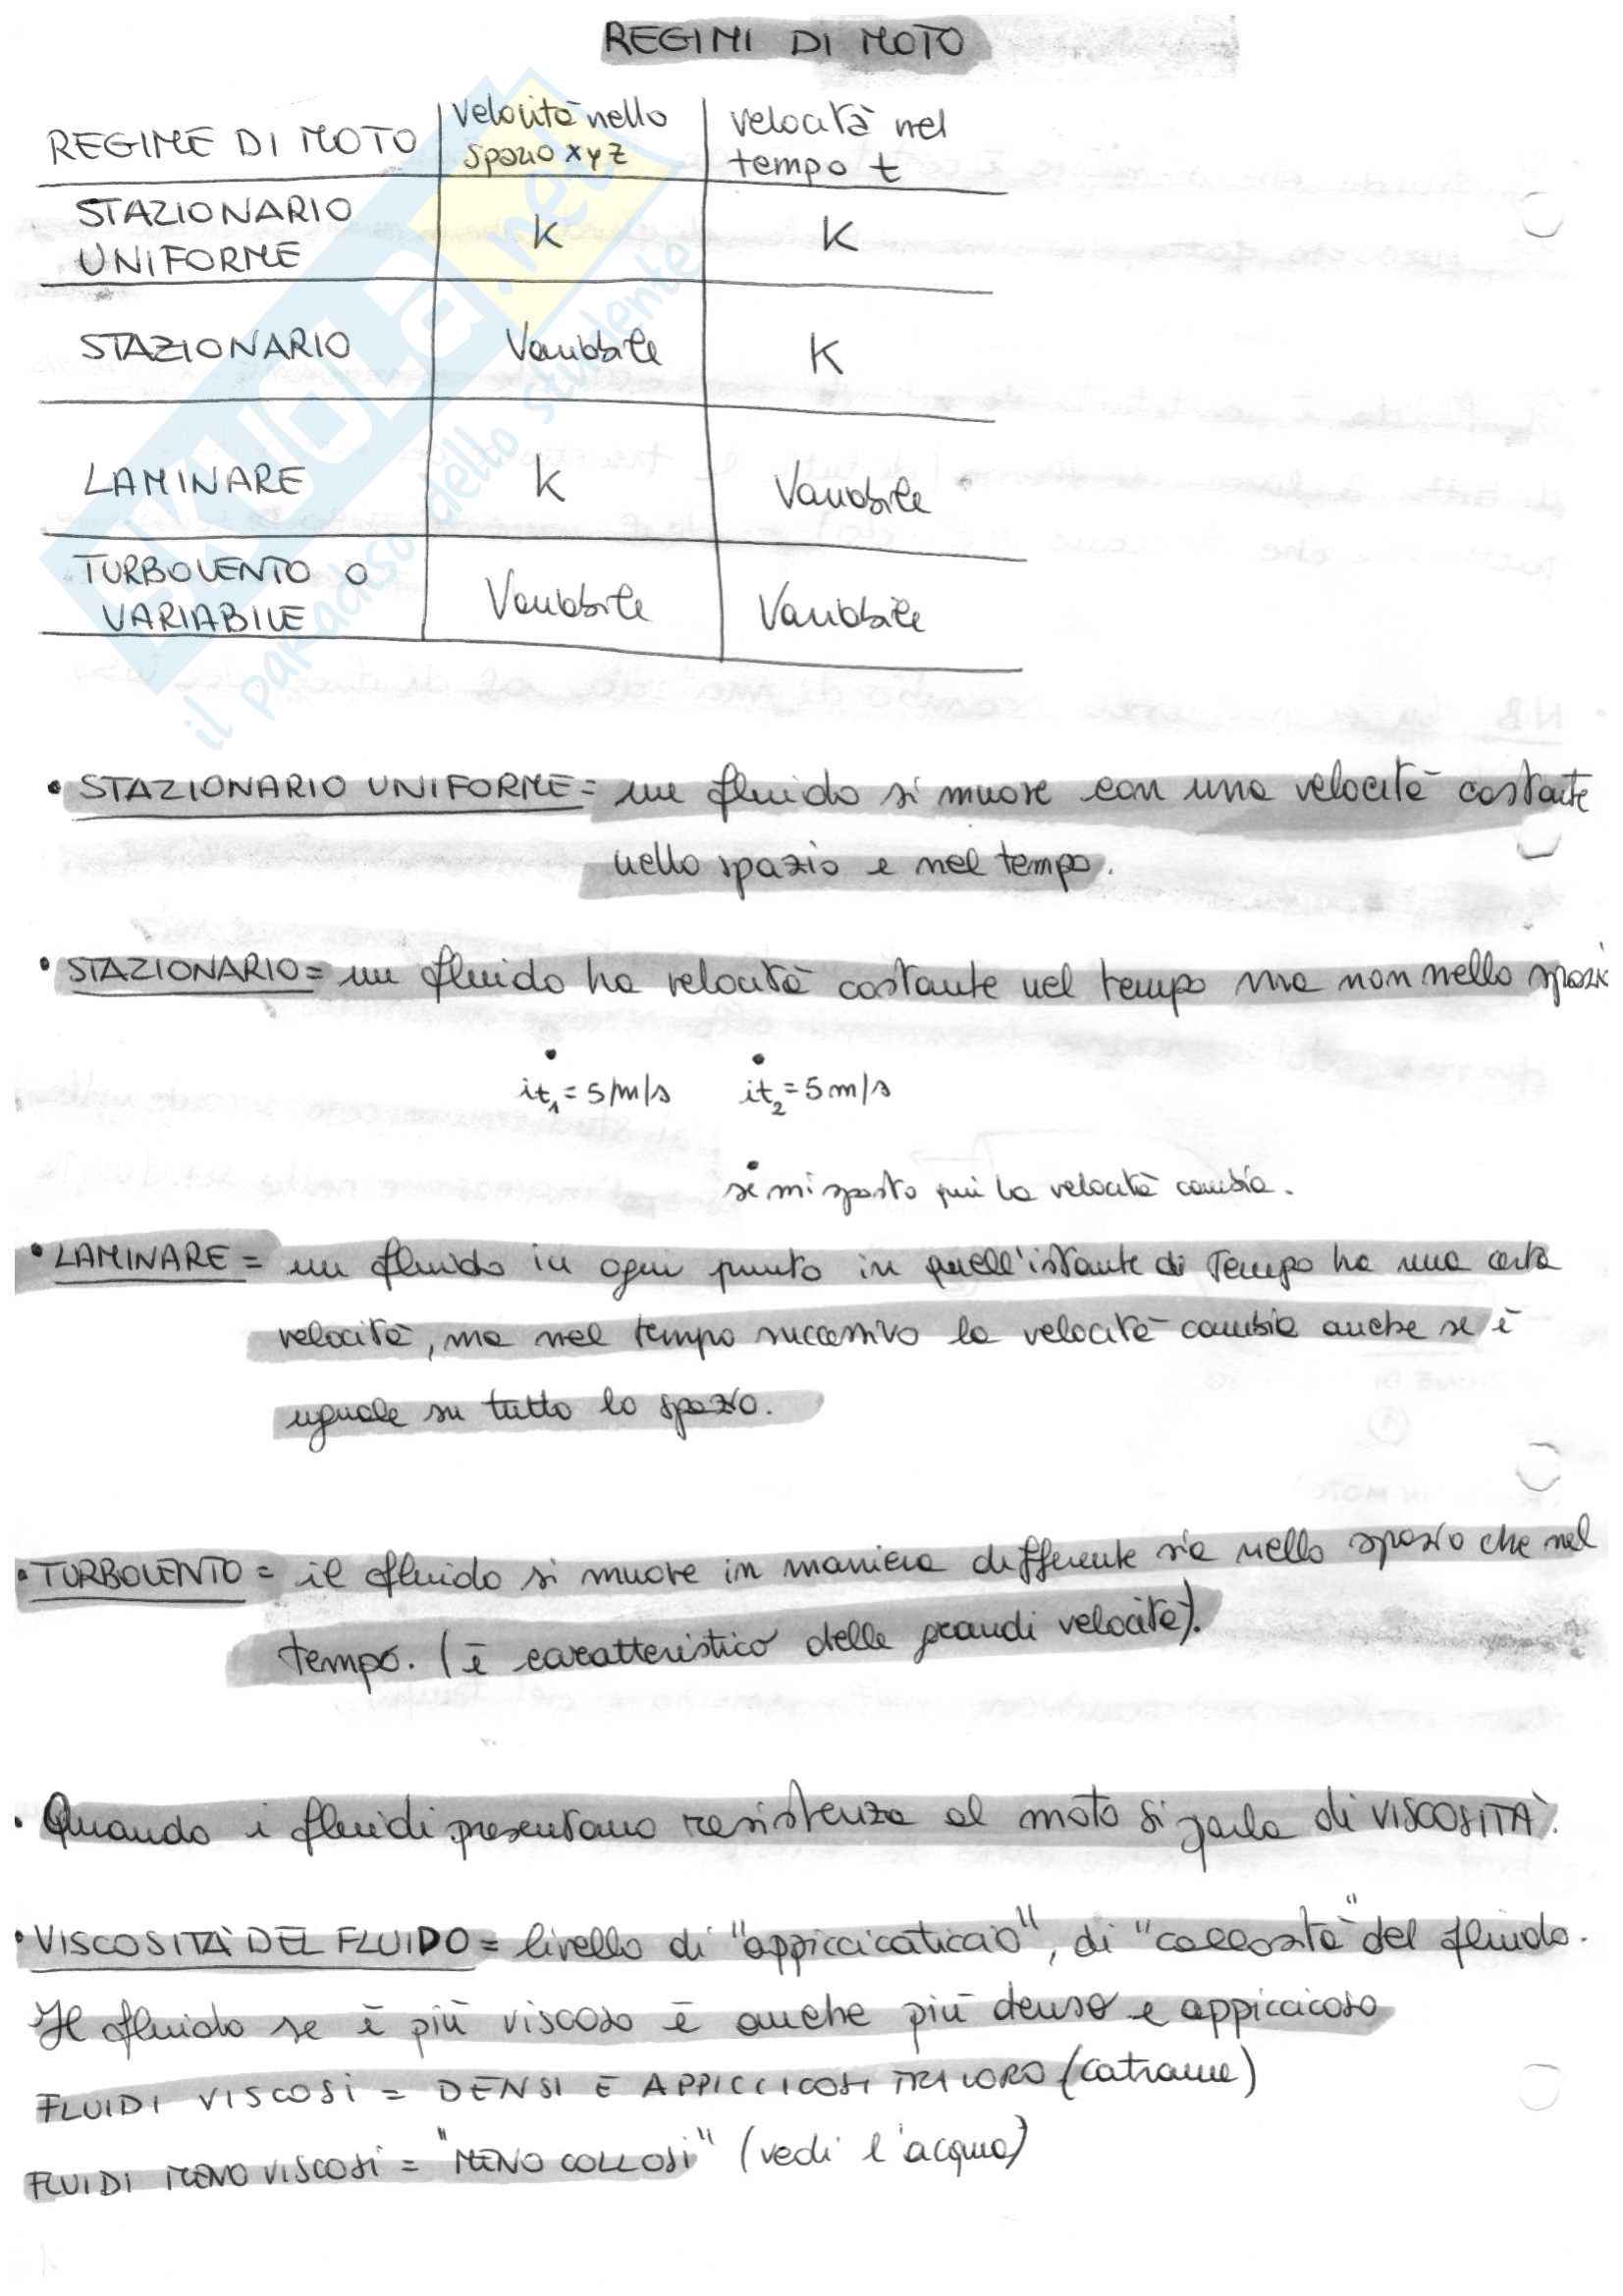 REGIMI DI MOTO
REGIME DI MOTO | Velocità nello spazio x y z | velocità nel tempo t
STAZIONARIO UNIFORME | K | K
STAZIONARIO | Variabile | K
LAMINARE | K | Variabile
TURBOLENTO O VARIABILE | Variabile | Variabile
SKUOLA.net
il paradiso dello studente
• STAZIONARIO UNIFORME = un fluido si muove con una velocità costante
nello spazio e nel tempo.
• STAZIONARIO = un fluido ha velocità costante nel tempo ma non nello spazi
it₁ = 5 m/s it₂ = 5 m/s
se mi sposto qui la velocità cambia.
• LAMINARE = un fluido in ogni punto in quell'istante di Tempo ha una certa
velocità, ma nel tempo successivo la velocità cambia anche se è
uguale su tutto lo spazio.
• TURBOLENTO = il fluido si muove in maniera differente sia nello spazio che nel
tempo. (è caratteristico delle grandi velocità).
• Quando i fluidi presentano resistenza al moto si parla di VISCOSITÀ.
• VISCOSITÀ DEL FLUIDO = livello di "appiccicaticcio", di "collosità" del fluido.
Il fluido se è più viscoso è anche più denso e appiccicoso
FLUIDI VISCOSI = DENSI E APPICCICOSI TRA LORO (catrame)
FLUIDI MENO VISCOSI = "MENO COLLOSI" (vedi l'acqua)